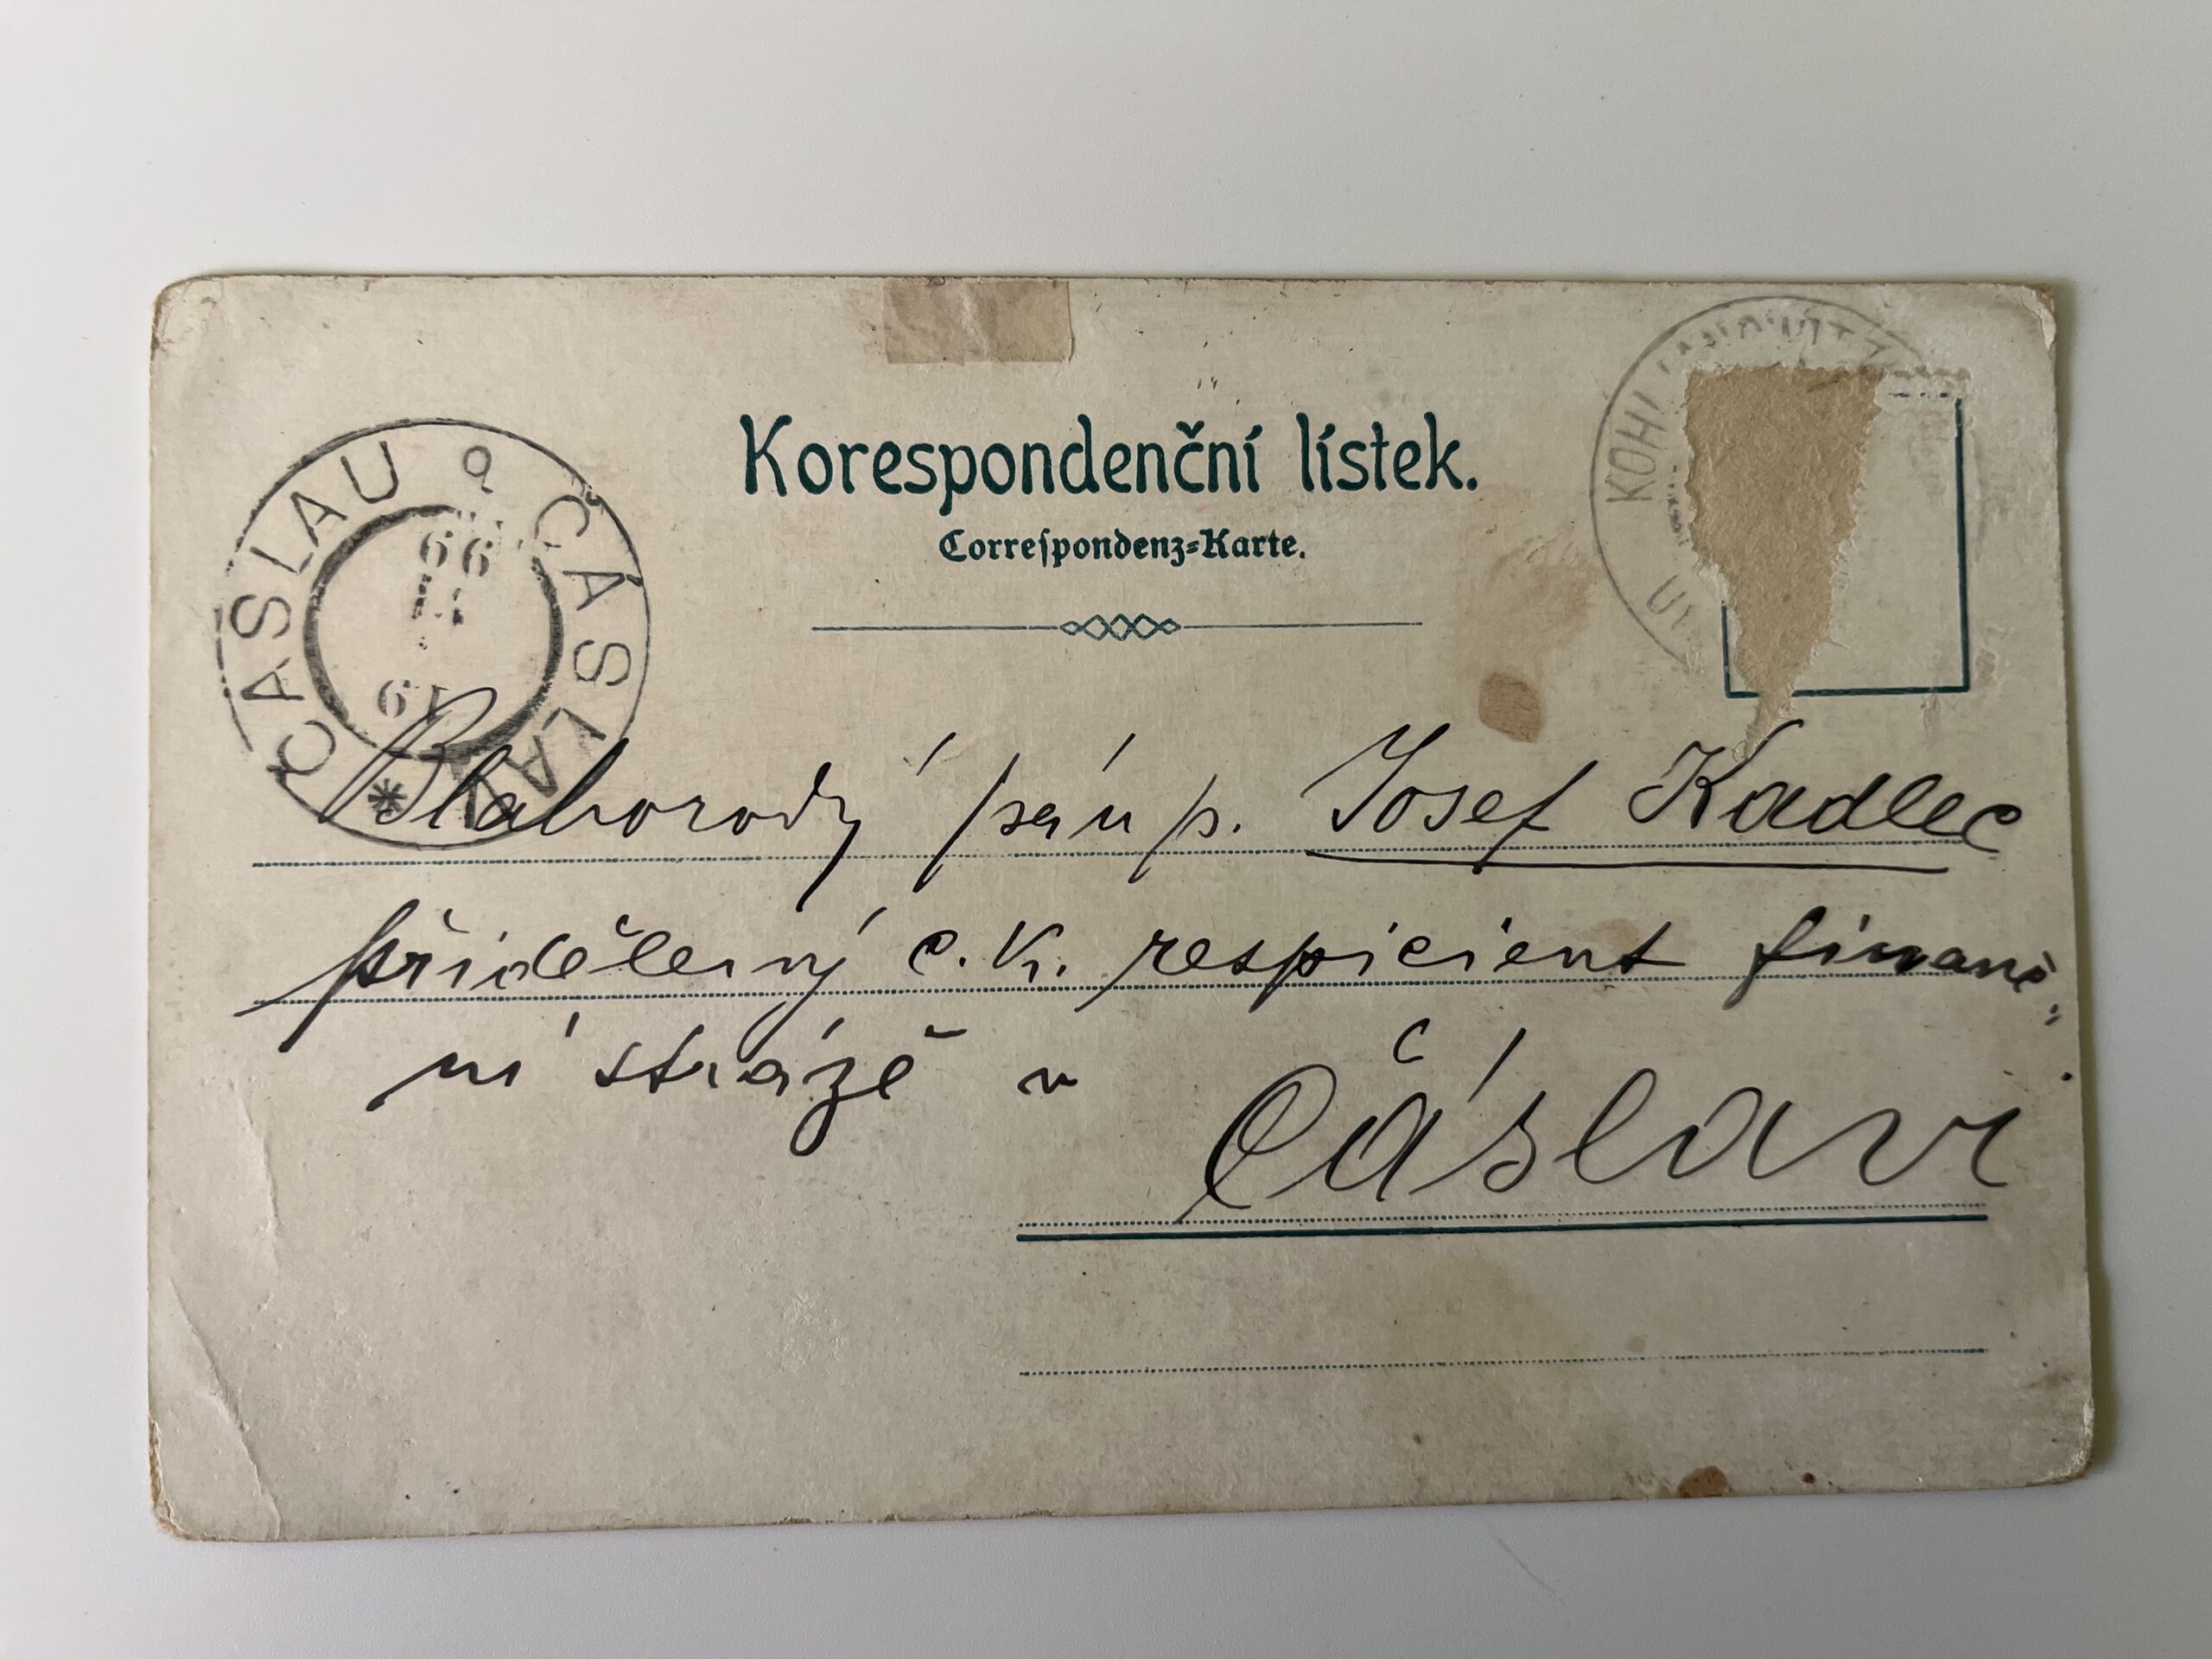 Korespondenční lístek.
Correspondenz-Karte.
ČÁSLAV
CASLAU
99
KOHL
Blahorodý pán p. Josef Kadlec
přidělený c. k. respicient finanč-
ní stráže v
Čáslavi